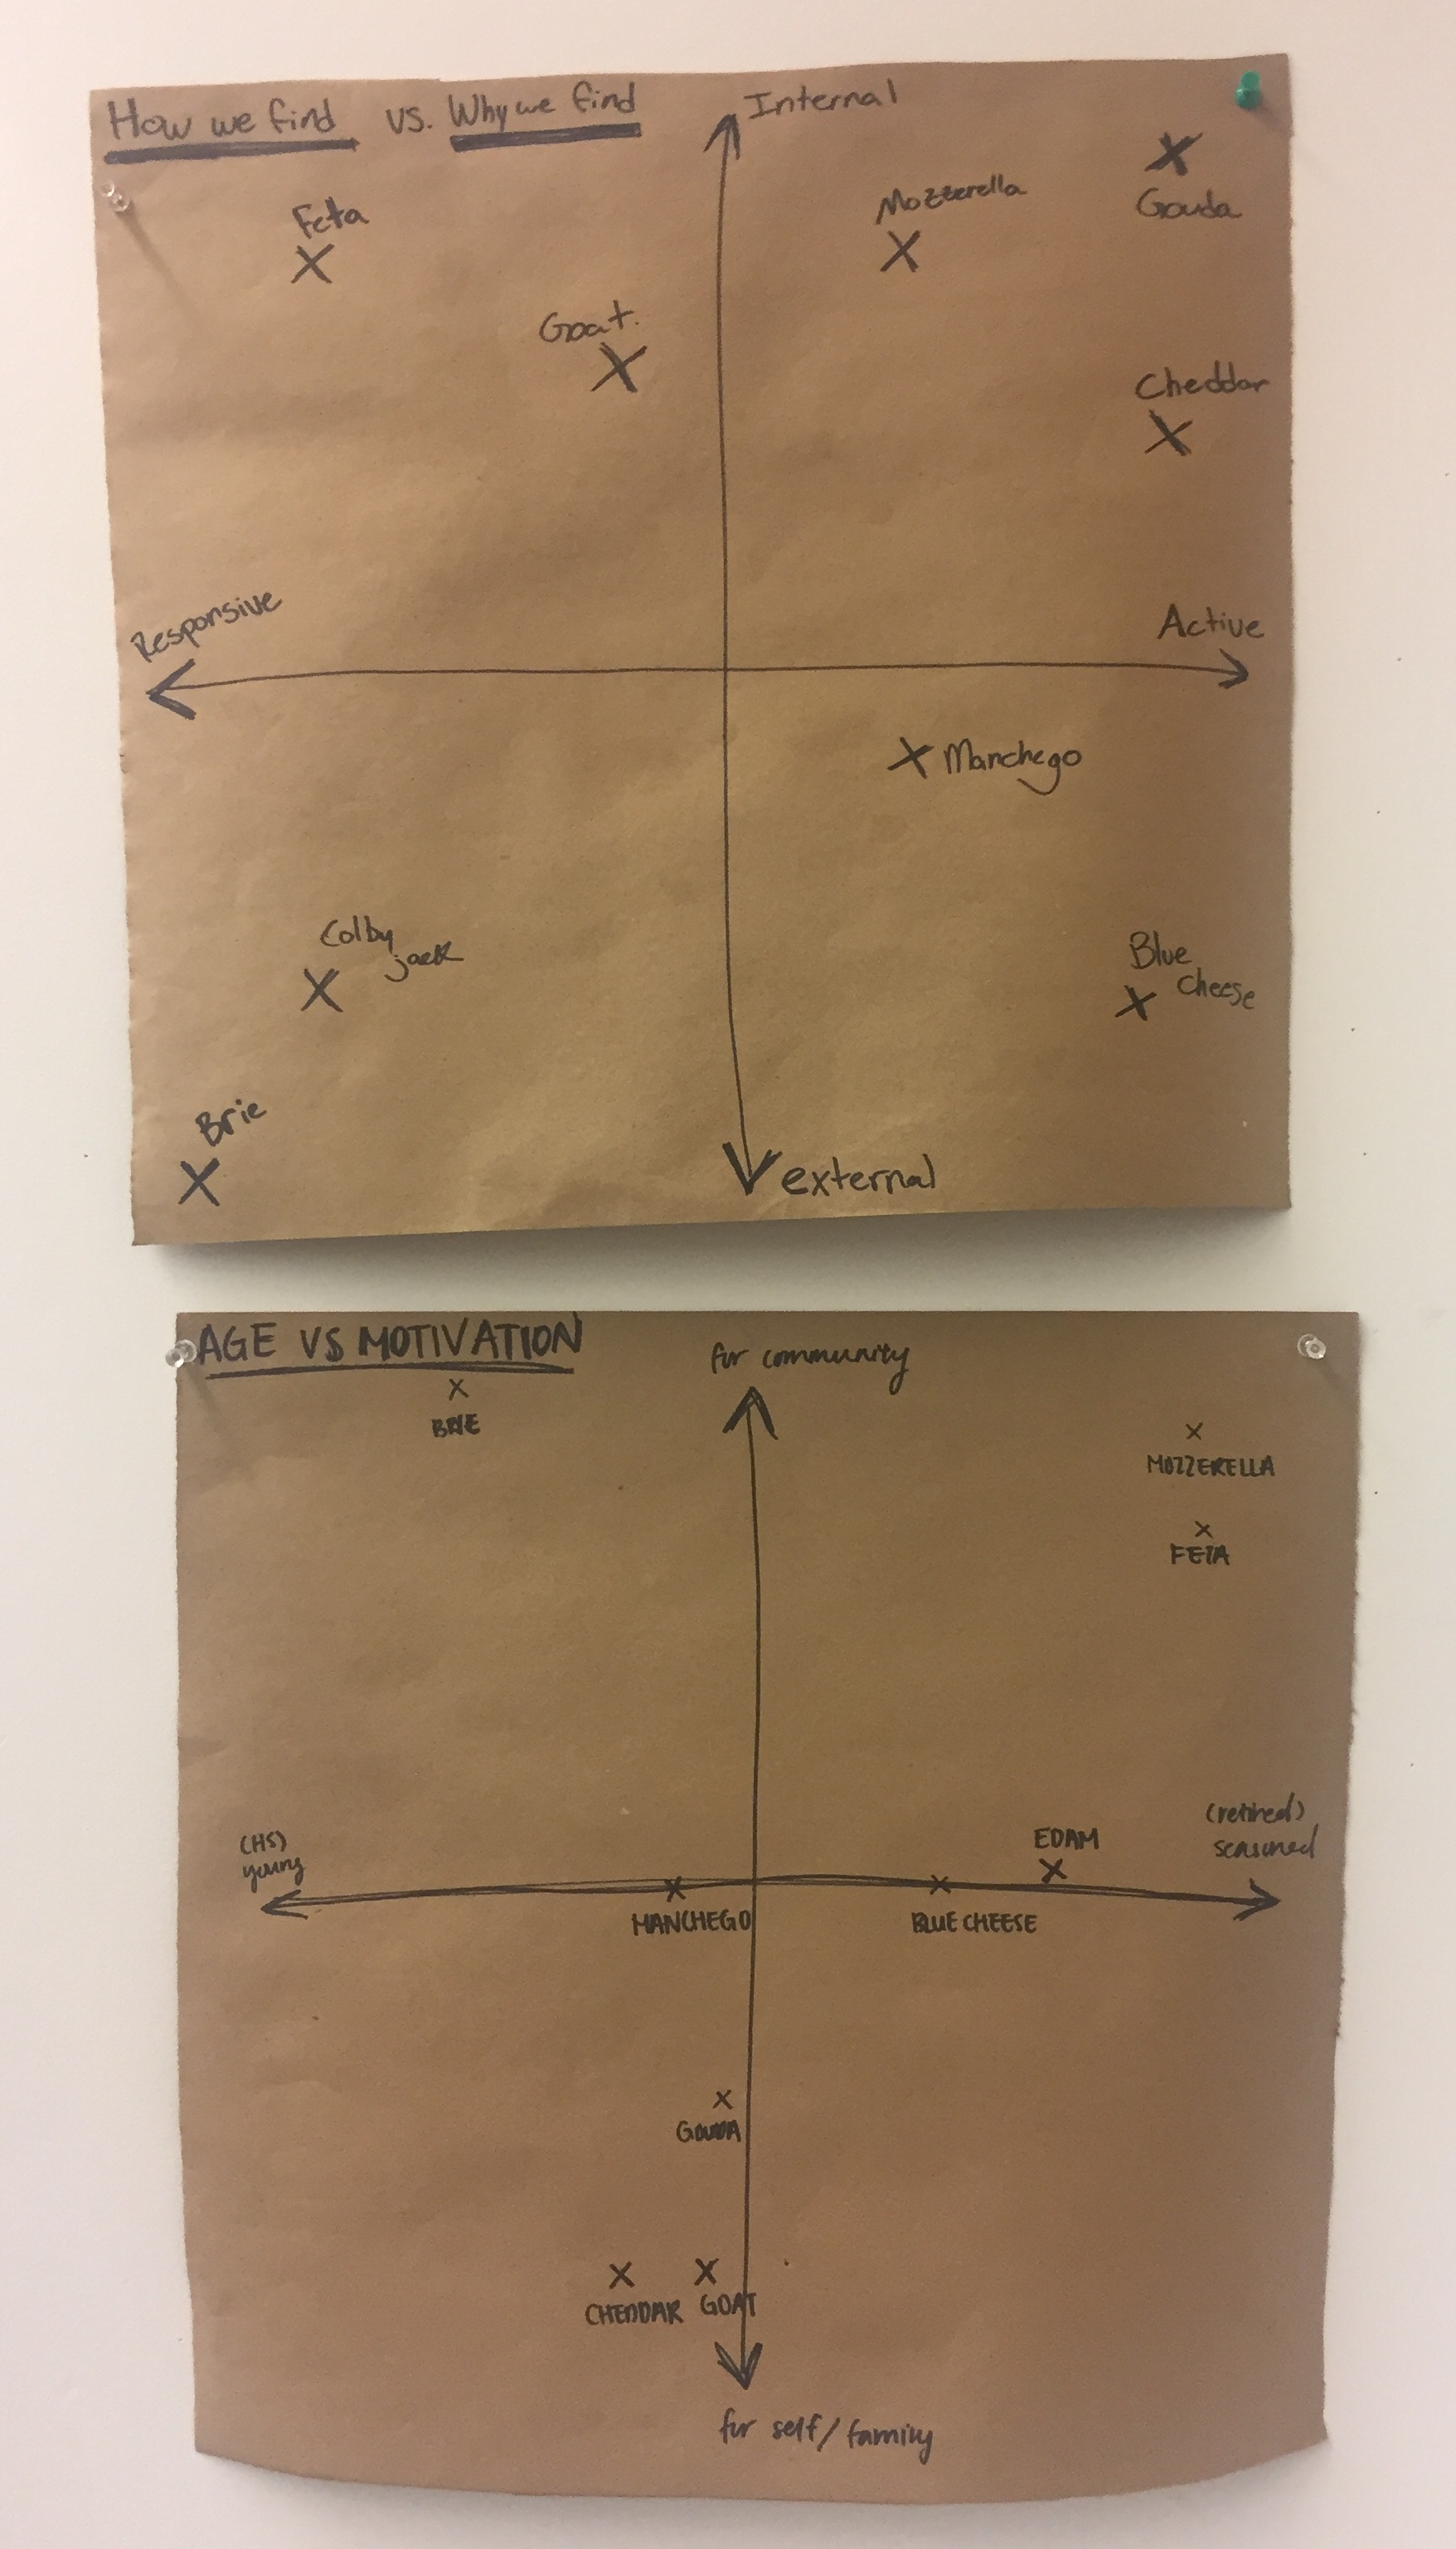 How we find vs. Why we find
Internal
Gouda
Mozzerella
Feta
Goat.
Cheddar
Responsive
Active
Manchego
Colby
jack
Blue
Cheese
Brie
external
AGE VS MOTIVATION
for community
BRIE
MOZZERELLA
FETA
(HS)
young
EDAM
(retired)
seasoned
MANCHEGO
BLUE CHEESE
GOUDA
CHEDDAR
GOAT
for self/family